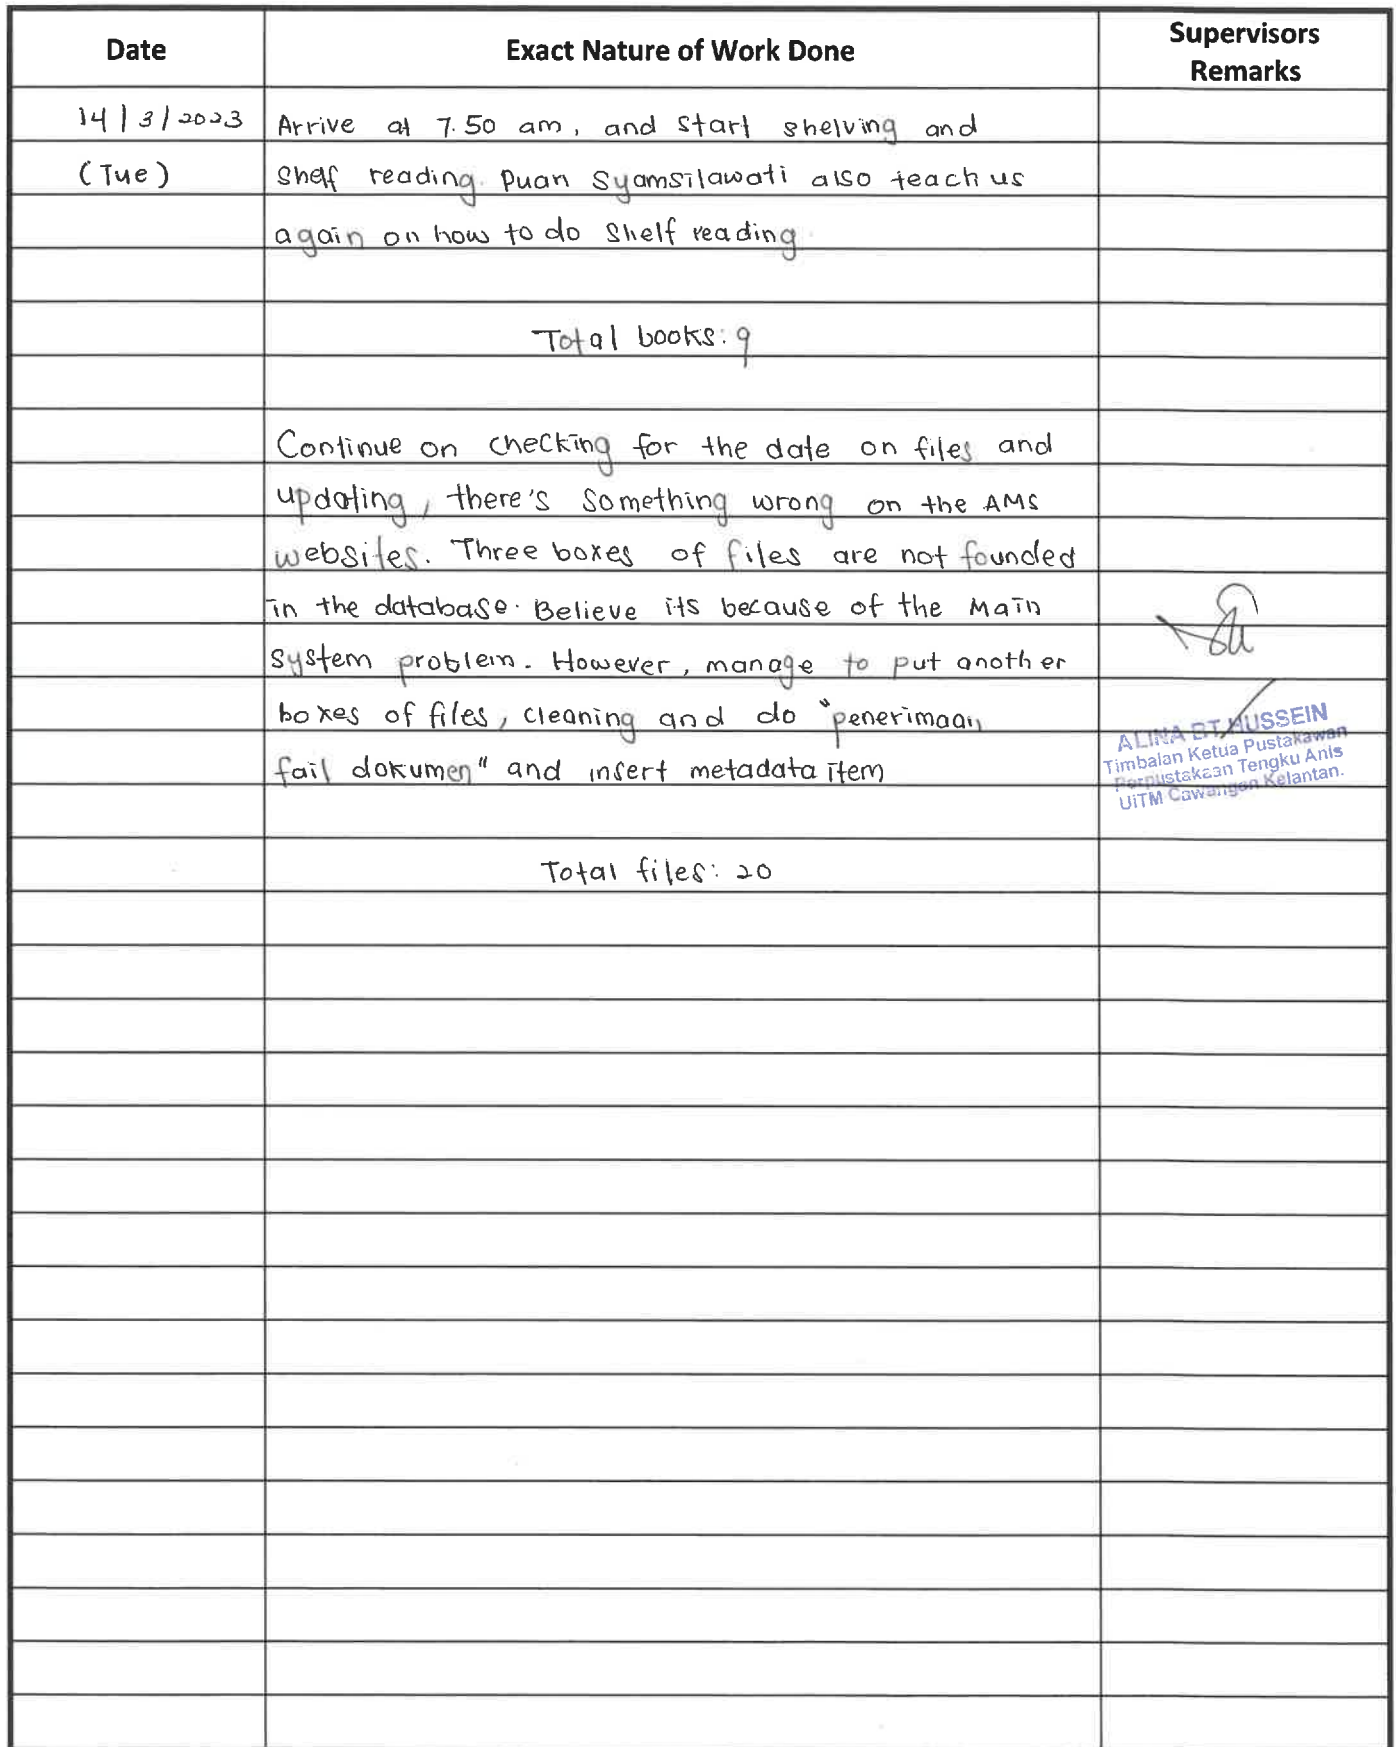 Date
Exact Nature of Work Done
Supervisors
Remarks
14/3/2023
Arrive at 7.50 am, and start shelving and
(Tue)
Shelf reading. Puan Syamsilawati also teach us
again on how to do Shelf reading.
Total books: 9
Continue on checking for the date on files and
updating, there's something wrong on the AMS
websites. Three boxes of files are not founded
in the database. Believe its because of the Main
system problem. However, manage to put another
boxes of files, cleaning and do "penerimaan
fail dokumen" and insert metadata item
ALINA BT HUSSEIN
Timbalan Ketua Pustakawan
Perpustakaan Tengku Anis
UiTM Cawangan Kelantan.
Total files: 20